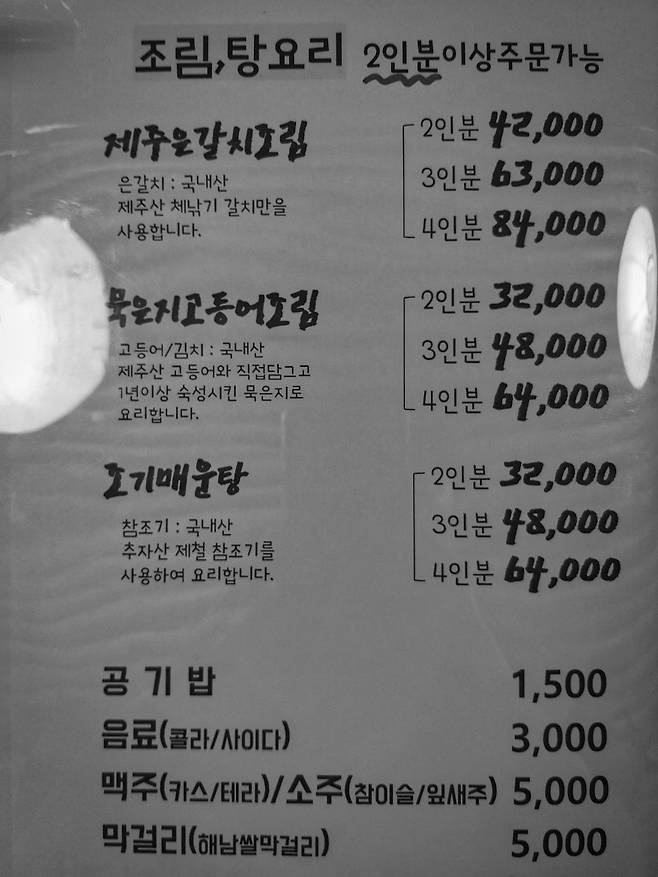 조림,탕요리 2인분이상주문가능
제주은갈치조림
은갈치 : 국내산
제주산 체낚기 갈치만을
사용합니다.
2인분 42,000
3인분 63,000
4인분 84,000
묵은지고등어조림
고등어/김치 : 국내산
제주산 고등어와 직접담그고
1년이상 숙성시킨 묵은지로
요리합니다.
2인분 32,000
3인분 48,000
4인분 64,000
조기매운탕
참조기 : 국내산
추자산 제철 참조기를
사용하여 요리합니다.
2인분 32,000
3인분 48,000
4인분 64,000
공기밥 1,500
음료(콜라/사이다) 3,000
맥주(카스/테라)/소주(참이슬/잎새주) 5,000
막걸리(해남쌀막걸리) 5,000